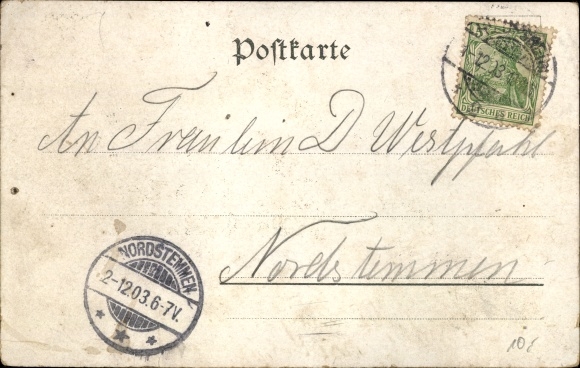 Postkarte
5
12.03
DEUTSCHES REICH
An Fräulein D Westpfahl
Nordstemmen
NORDSTEMMEN
2-12.03.6-7V.